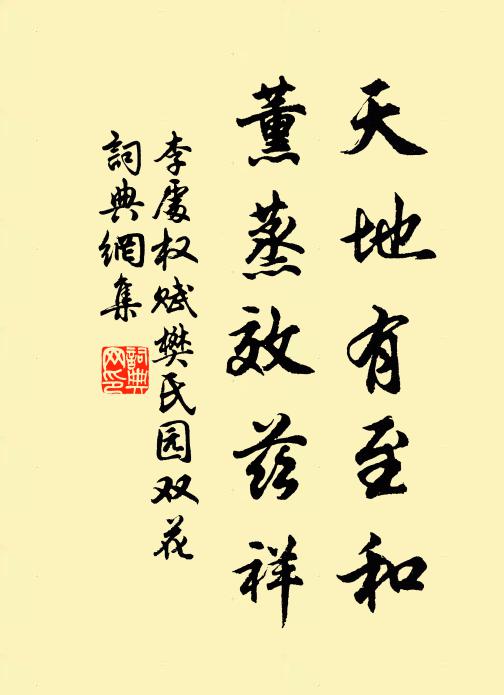 天地有至和
薰蒸效兹祥
李处权赋樊氏园双花
詞典網集
詞典
网印